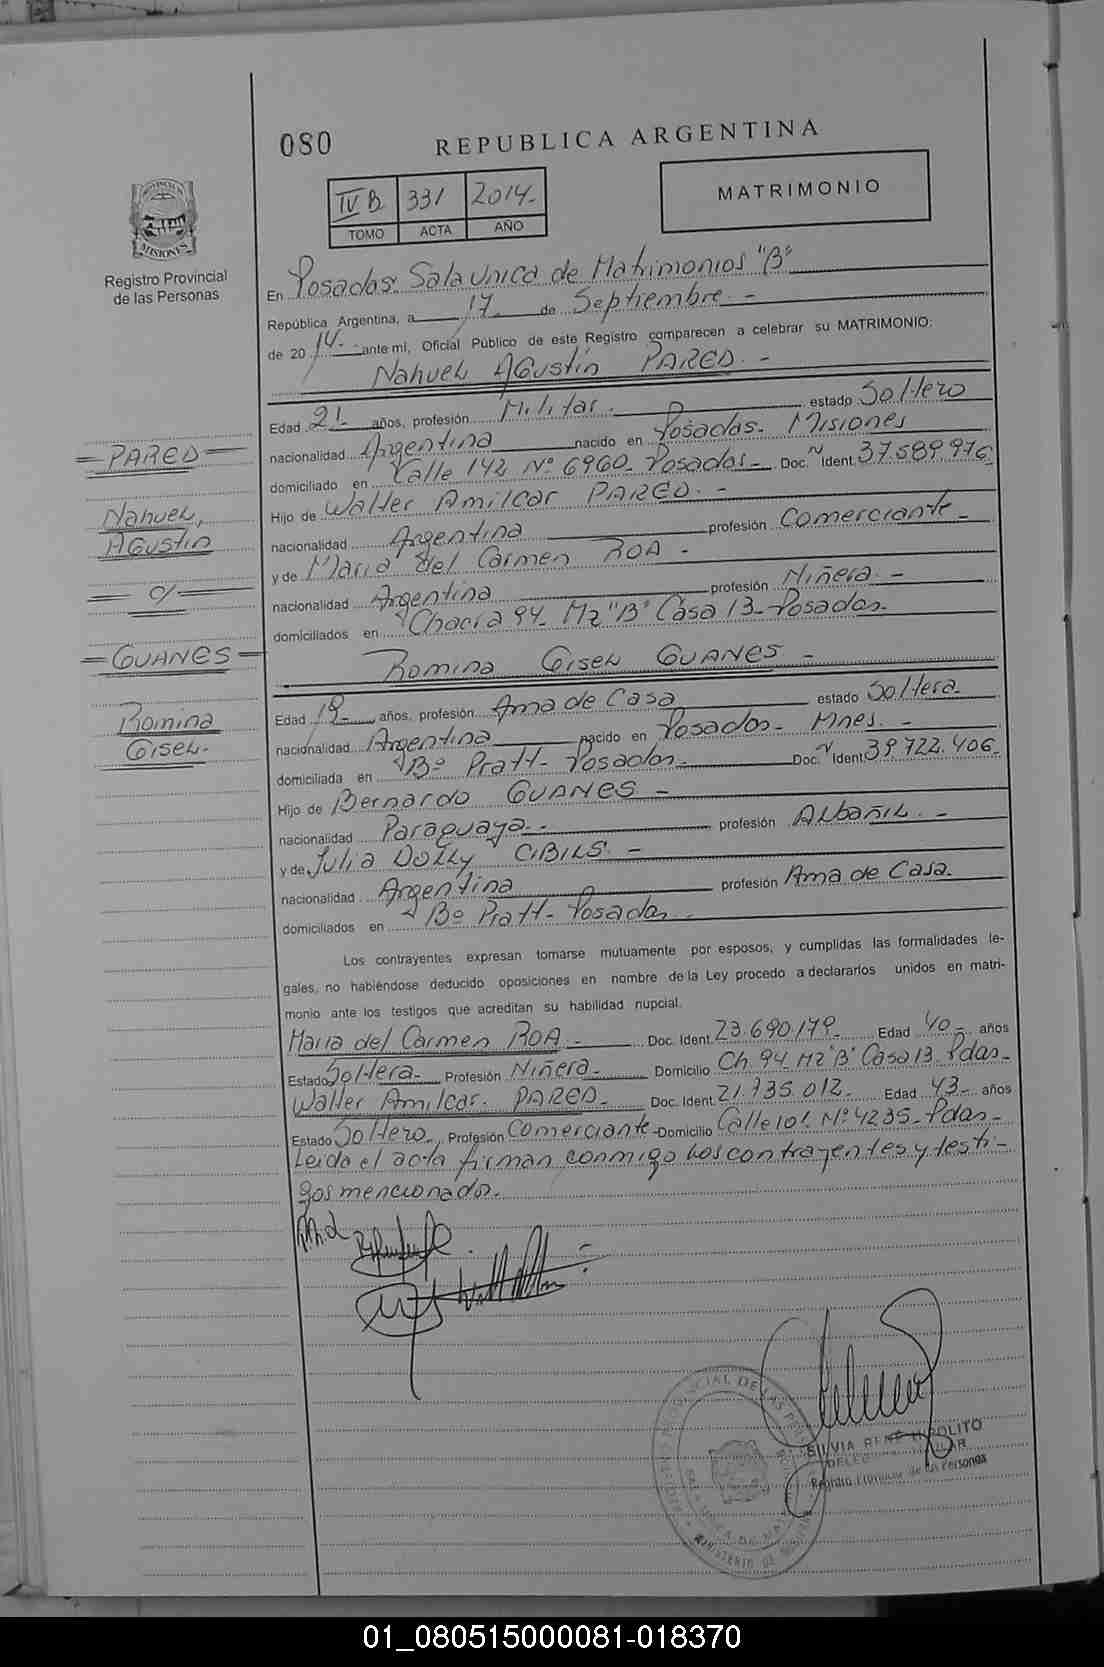 080
REPUBLICA ARGENTINA
IV B 331 2014.-
TOMO ACTA AÑO
MATRIMONIO
Registro Provincial
de las Personas
En Posadas: Sala Unica de Matrimonios "B"
República Argentina, a 17.- de Septiembre.-
de 2014.- ante mi, Oficial Público de este Registro comparecen a celebrar su MATRIMONIO:
Nahuel Agustín PARED.-
Edad 21.- años, profesión Militar.- estado Soltero
nacionalidad Argentina nacido en Posadas- Misiones
domiciliado en Calle 142 Nº 6960- Posadas- Doc. Ident. 37.589.976
Hijo de Walter Amilcar PARED.-
nacionalidad Argentina profesión Comerciante-
y de Maria del Carmen ROA-
nacionalidad Argentina profesión Niñera.-
domiciliados en Chacra 94- Mz "B" Casa 13- Posadas.
Romina Gisel GUANES-
Edad 19- años, profesión Ama de Casa estado Soltera-
nacionalidad Argentina nacido en Posadas- Mnes.-
domiciliada en Bº Pratt- Posadas- Doc. Ident. 39.722.406-
Hijo de Bernardo GUANES-
nacionalidad Paraguaya.- profesión Albañil.-
y de Julia Dolly CIBILS.-
nacionalidad Argentina profesión Ama de Casa.
domiciliados en Bº Pratt- Posadas.
Los contrayentes expresan tomarse mutuamente por esposos, y cumplidas las formalidades le-
gales, no habiéndose deducido oposiciones en nombre de la Ley procedo a declararlos unidos en matri-
monio ante los testigos que acreditan su habilidad nupcial.
Maria del Carmen ROA.- Doc. Ident. 23.690.179- Edad 40- años
Estado Soltera- Profesión Niñera- Domicilio Ch. 94- Mz "B" Casa 13- Pdas-
Walter Amilcar. PARED- Doc. Ident. 21.735.012- Edad 43- años
Estado Soltero- Profesión Comerciante- Domicilio Calle 101 Nº 4235- Pdas-
Leida el acta firman conmigo los contrayentes y testi-
gos mencionados.
PARED
Nahuel,
Agustín
c/
GUANES
Romina
Gisel.-
SILVIA RENE HIPOLITO
Registro Provincial de las Personas
01_080515000081-018370